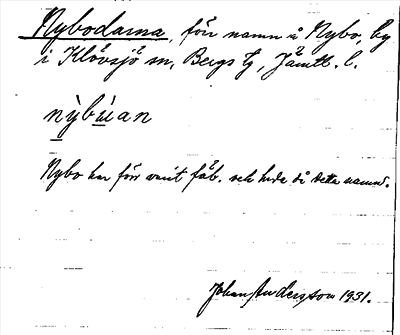 Nybodarna, förr namn å Nybo, by
i Klövsjö sn, Bergs tg, Jämtl. l.
nỳbùan
Nybo har förr varit fäb. och hade då detta namn.
Johan Andersson 1931.